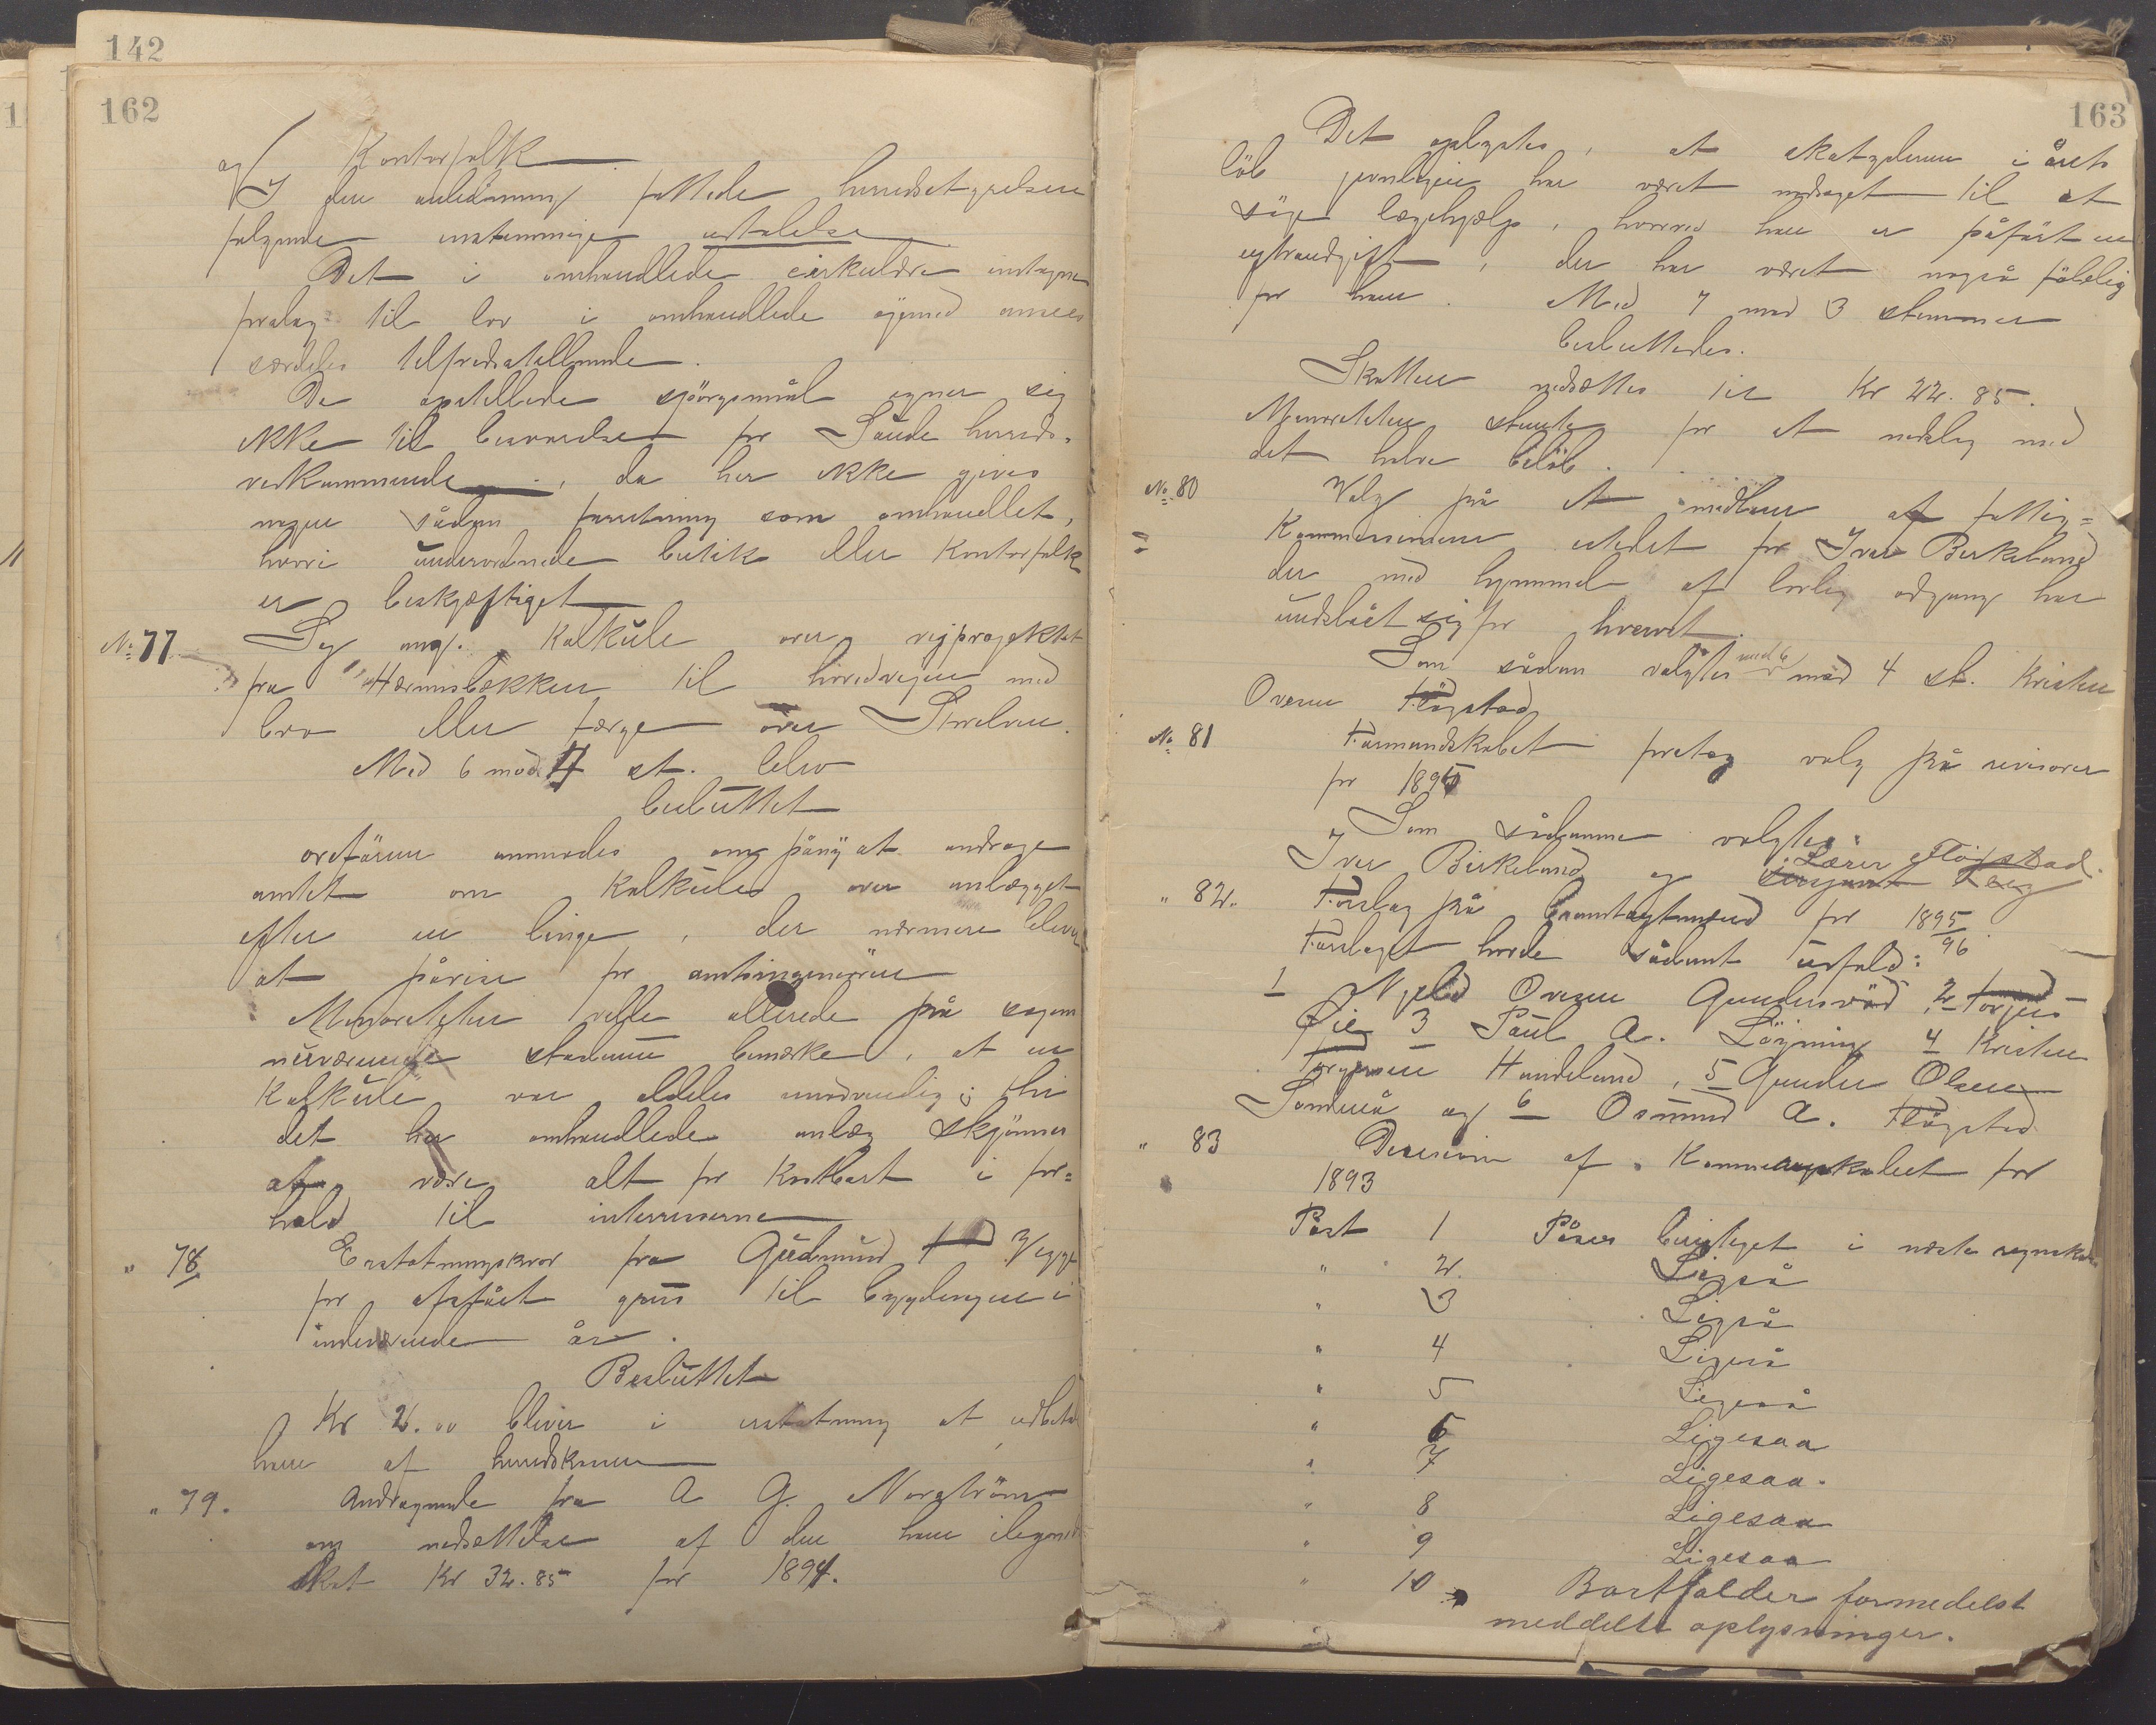 142
162
og Kontorfolk
I den anledning fattede herredsstyrelsen
følgende enstemmige udtalelse
Det i omhandlede cirkulære indtagne
forslag til lov i omhandlede øjemed ansees
særdeles tilfredsstillende.
De opstillede spörgsmål egner sig
ikke til besvarelse for Saude herreds-
vedkommende, da her ikke gives
nogen sådan forretning som omhandlet,
hvori underordnede butik eller Kontorfolk
er beskjæftiget
No 77 Sag ang. Kalkule over vejprojektet
fra bækken til hovedvejen med
bro eller færge over Storelven.
Med 6 mod 4 st. blev
besluttet
ordføreren anmodes om påny at andrage
amtet om Kalkule over anlægget
efter en linje, der nærmere bliver
at påvise for amtsingeniøren
Minoriteten vilde allerede på sagens
nuværende stadium bemærke, at en
Kalkule var aldeles unødvendig; thi
det her omhandlede anlæg skjønnes
at være alt for kostbart i for=
hold til interesserne
" 78 Erstatningskrav fra Gudmund
for afståt grus til bygdevejen i
indeværende år.
Besluttet
Kr 2.00 bliver i erstatning at udbetale
ham af herredskassen
" 79. Andragende fra A G. Norström
om nedsættelse af den ham ilagte
skat Kr 32.85 for 1894.
163
Det oplystes, at skatyderen i årets
löb jevnligen har været nødsaget til at
söge lægehjælp, hvorved han er påført en
extraudgift, der har været også fölelig
for ham. Med 7 mod 3 stemmer
besluttedes.
Skatten nedsættes til Kr 22.85.
Minoriteten stemte for et nedslag med
det halve belöb.
No 80 Valg på et medlem af fattig=
Kommissionen istedet for Iver Birkeland
der med hjemmel af lovlig adgang har
undslåt sig for hvervet.
Som sådan valgtes med 6 mod 4 st. Kristen
Ovesen Flögstad
No 81 Formandskabet foretog valg på revisorer
for 1895
Som sådanne valgtes:
Iver Birkeland og Lærer Flögstad.
" 82. Forslag på brandtagtmænd for 1895/96
Forslaget havde sådant udfald:
1 Njeld Ovesen 2 Torjus
Öie 3 Paul A. Löyning 4 Kristen
Torjusen Handeland, 5 Gunder Olsen
og 6 Osmund A. Flögstad
" 83 Decision af Kommuneregnskabet for
1893
Post 1 Påsees berigtiget i næste regnskab
" 2. Ligeså
" 3 Ligeså
" 4 Ligeså
" 5 Ligeså
" 6 Ligesaa
" 7 Ligesaa.
" 8 Ligesaa
" 9 Ligesaa
" 10 Bortfalder formedelst
meddelte oplysninger.